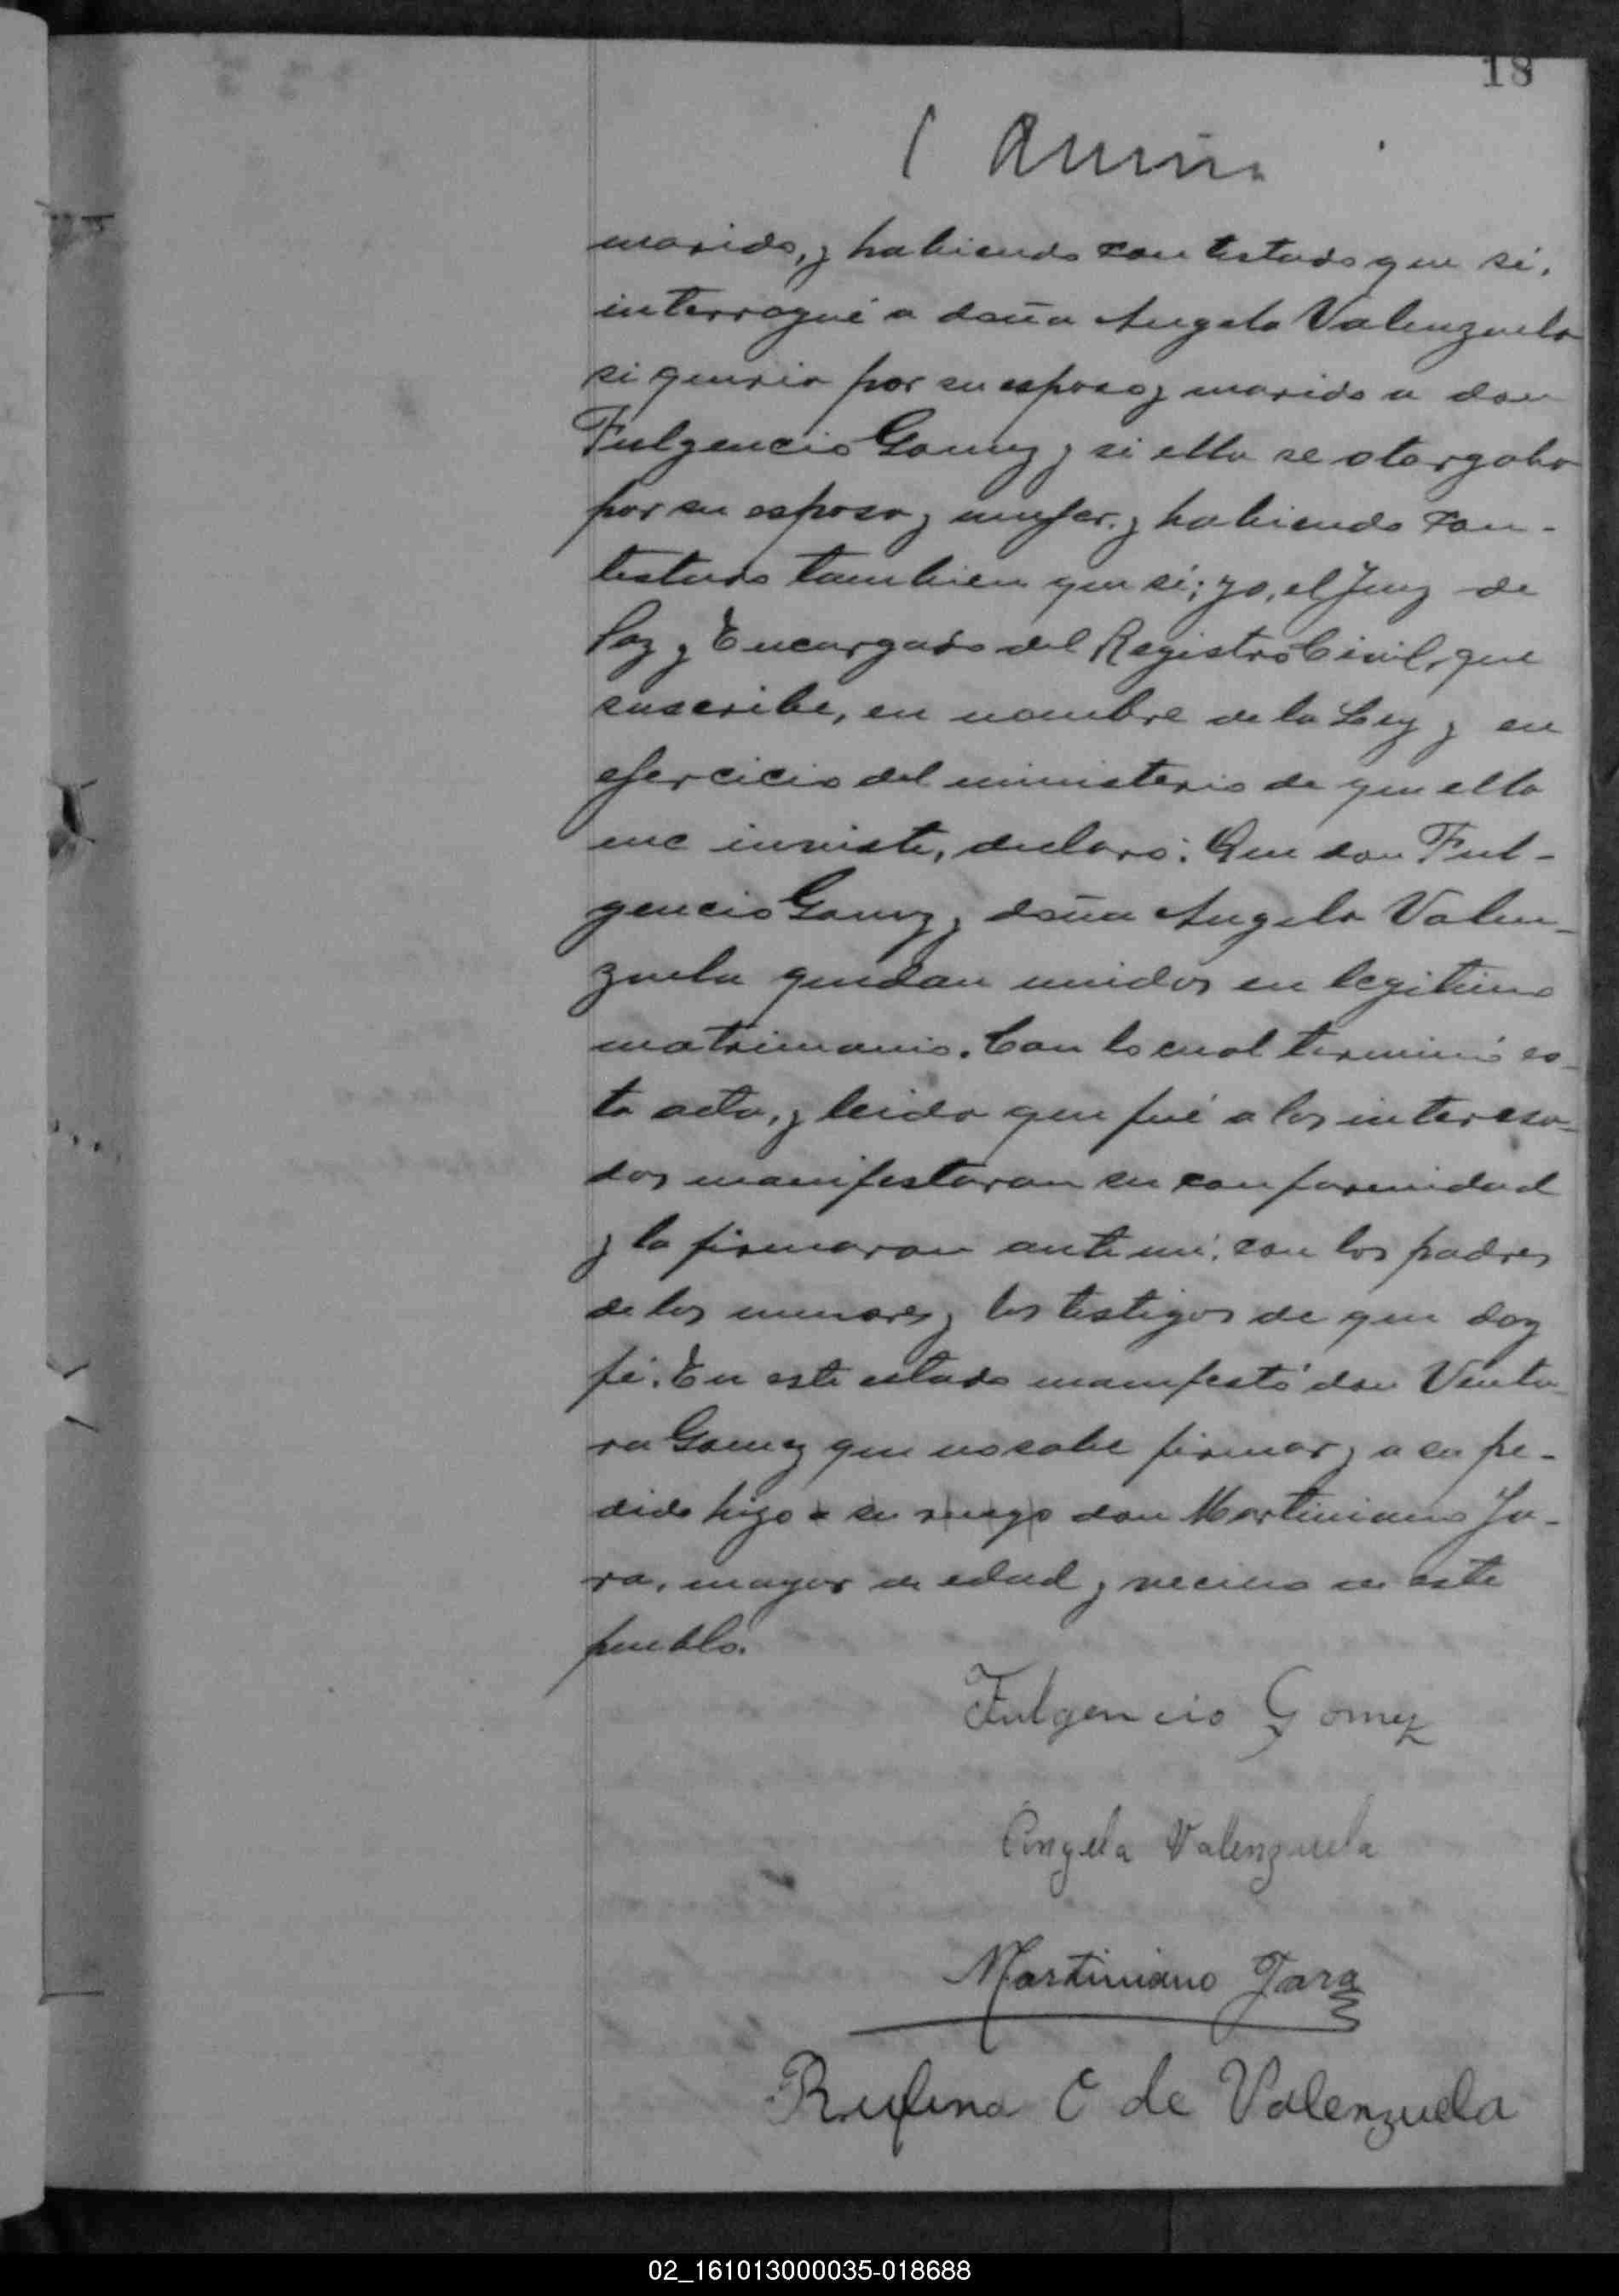 18
marido, y habiendo contestado que sí,
interrogué a doña Angela Valenzuela
si queria por su esposo y marido a don
Fulgencio Gomez y si ella se otorgaba
por su esposa y mujer, y habiendo con-
testado tambien que sí; yo, el Juez de
Paz y Encargado del Registro Civil, que
suscribe, en nombre de la Ley y en
ejercicio del ministerio de que ella
me inviste, declaro: Que don Ful-
gencio Gomez y doña Angela Valen-
zuela quedan unidos en legitimo
matrimonio. Con lo cual terminó es-
ta acta, y leida que fué a los interesa-
dos manifestaron su conformidad
y la firmaron ante mí, con los padres
de los menores y los testigos de que doy
fé. En este estado manifestó don Ventu-
ra Gomez que no sabe firmar y a su pe-
dido hizo a su ruego don Martiniano Ja-
ra, mayor de edad y vecino de este
pueblo.
Fulgencio Gomez
Angela Valenzuela
Martiniano Jara
Rufina C de Valenzuela
02_161013000035-018688